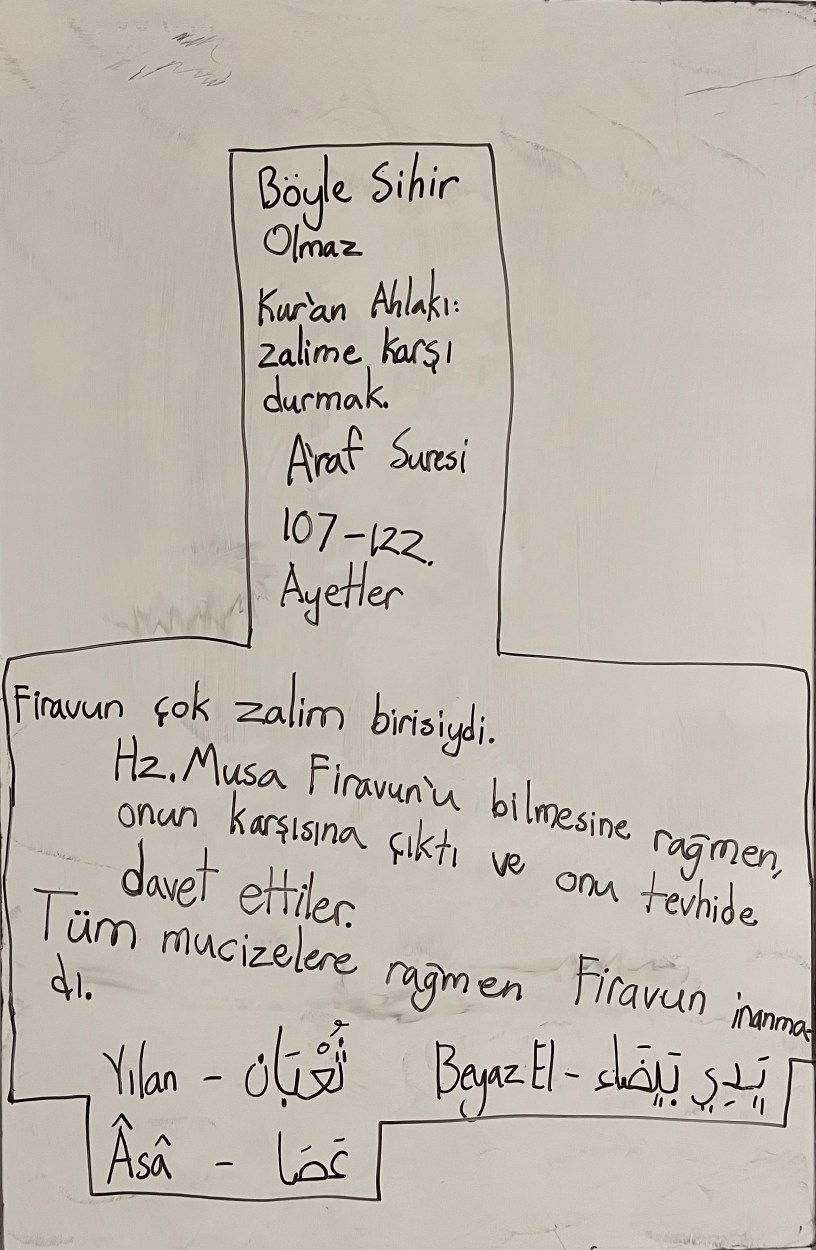 Böyle Sihir
Olmaz
Kur'an Ahlakı:
zalime karşı
durmak.
A'raf Suresi
107-122.
Ayetler
Firavun çok zalim birisiydi.
Hz. Musa Firavun'u bilmesine rağmen,
onun karşısına çıktı ve onu tevhide
davet ettiler.
Tüm mucizelere rağmen Firavun inanma-
dı.
Yılan - ثُعْبَان Beyaz El - يَدِي بَيْضَاء
Âsâ - عَصَا